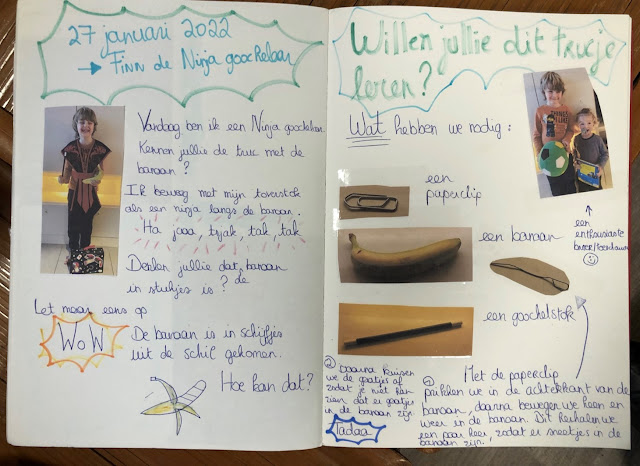 27 januari 2022
→ Finn de Ninja goochelaar
Vandaag ben ik een Ninja goochelaar.
Kennen jullie de truc met de
banaan?
Ik beweeg met mijn toverstok
als een ninja langs de banaan.
Ha jaaa, tsjak, tak, tak
Denken jullie dat de banaan
in stukjes is?
Let maar eens op
WOW
De banaan is in schijfjes
uit de schil gekomen.
Hoe kan dat?
Willen jullie dit trucje
leren?
Wat hebben we nodig:
een
paperclip
een banaan
een goochelstok
een
enthousiaste
Met de paperclip
prikken we in de achterkant van de
banaan, daarna bewegen we heen en
weer in de banaan. Dit herhalen we
een paar keer, zodat er sneetjes in de
banaan zijn.
② Daarna kruisen
we de gaatjes af
zodat je niet kan
zien dat er gaatjes
in de banaan zijn
Tadaa